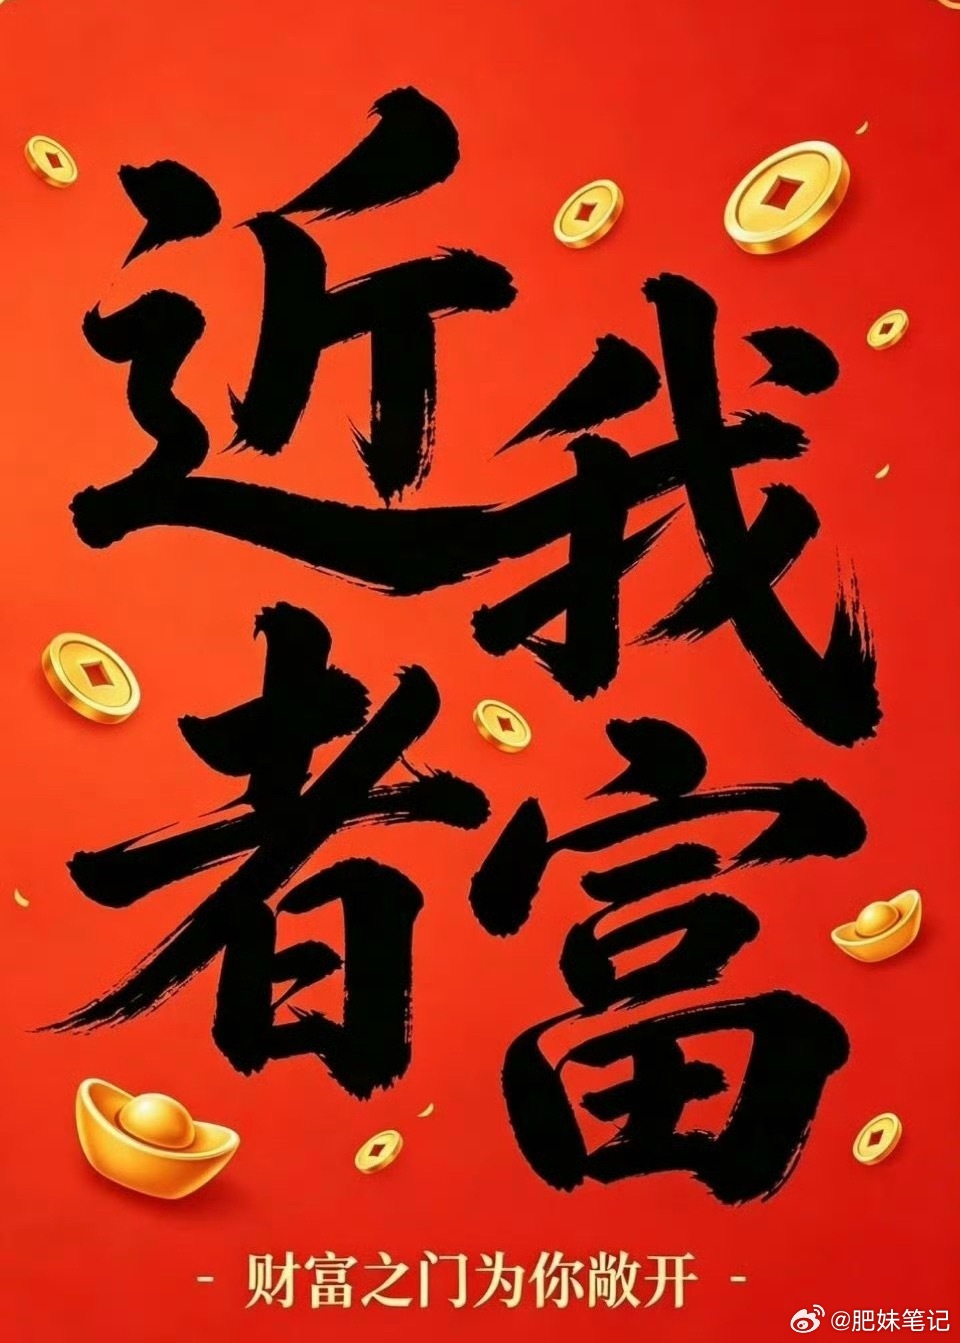 近我
者富
- 财富之门为你敞开 -
@肥妹笔记